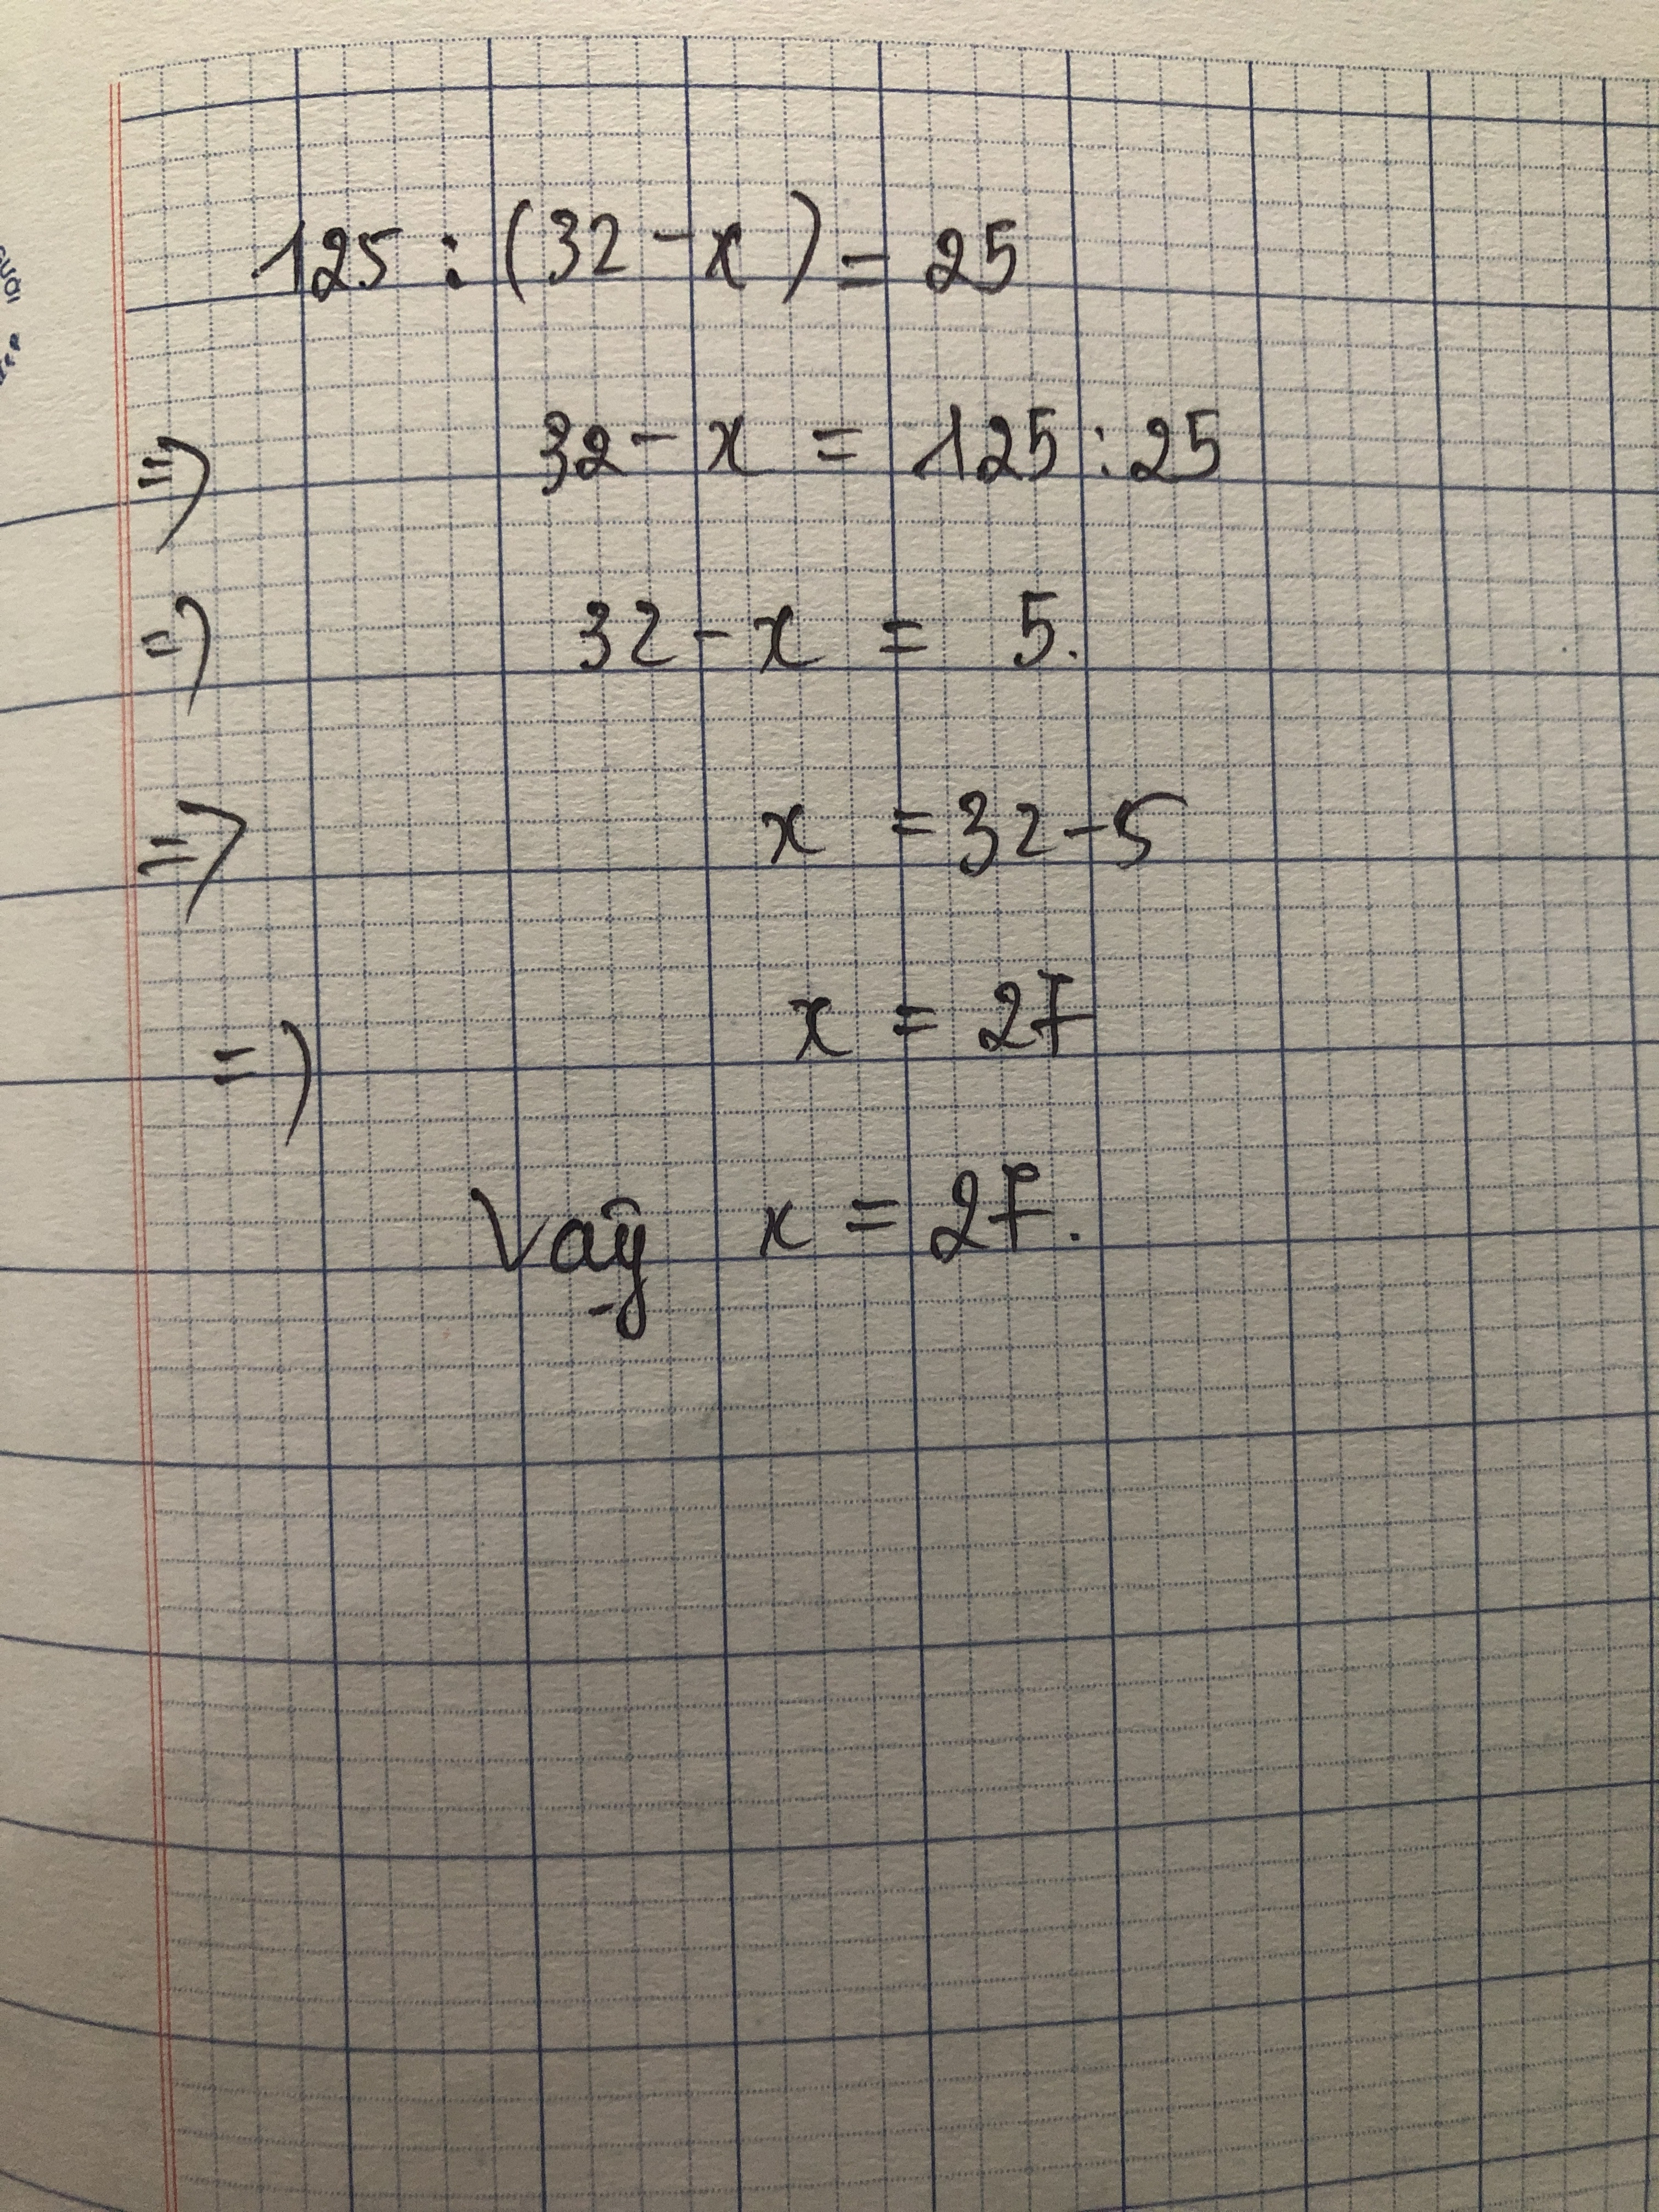 125 : (32 - x) = 25
=> 32 - x = 125 : 25
=> 32 - x = 5.
=> x = 32 - 5
=> x = 27
Vậy x = 27.